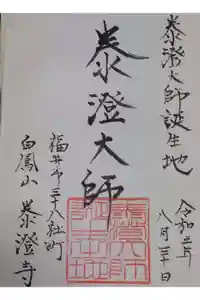 泰澄大師誕生地
令和三年
八月三十日
泰澄大師
福井市三十八社町
白鳳山 泰澄寺